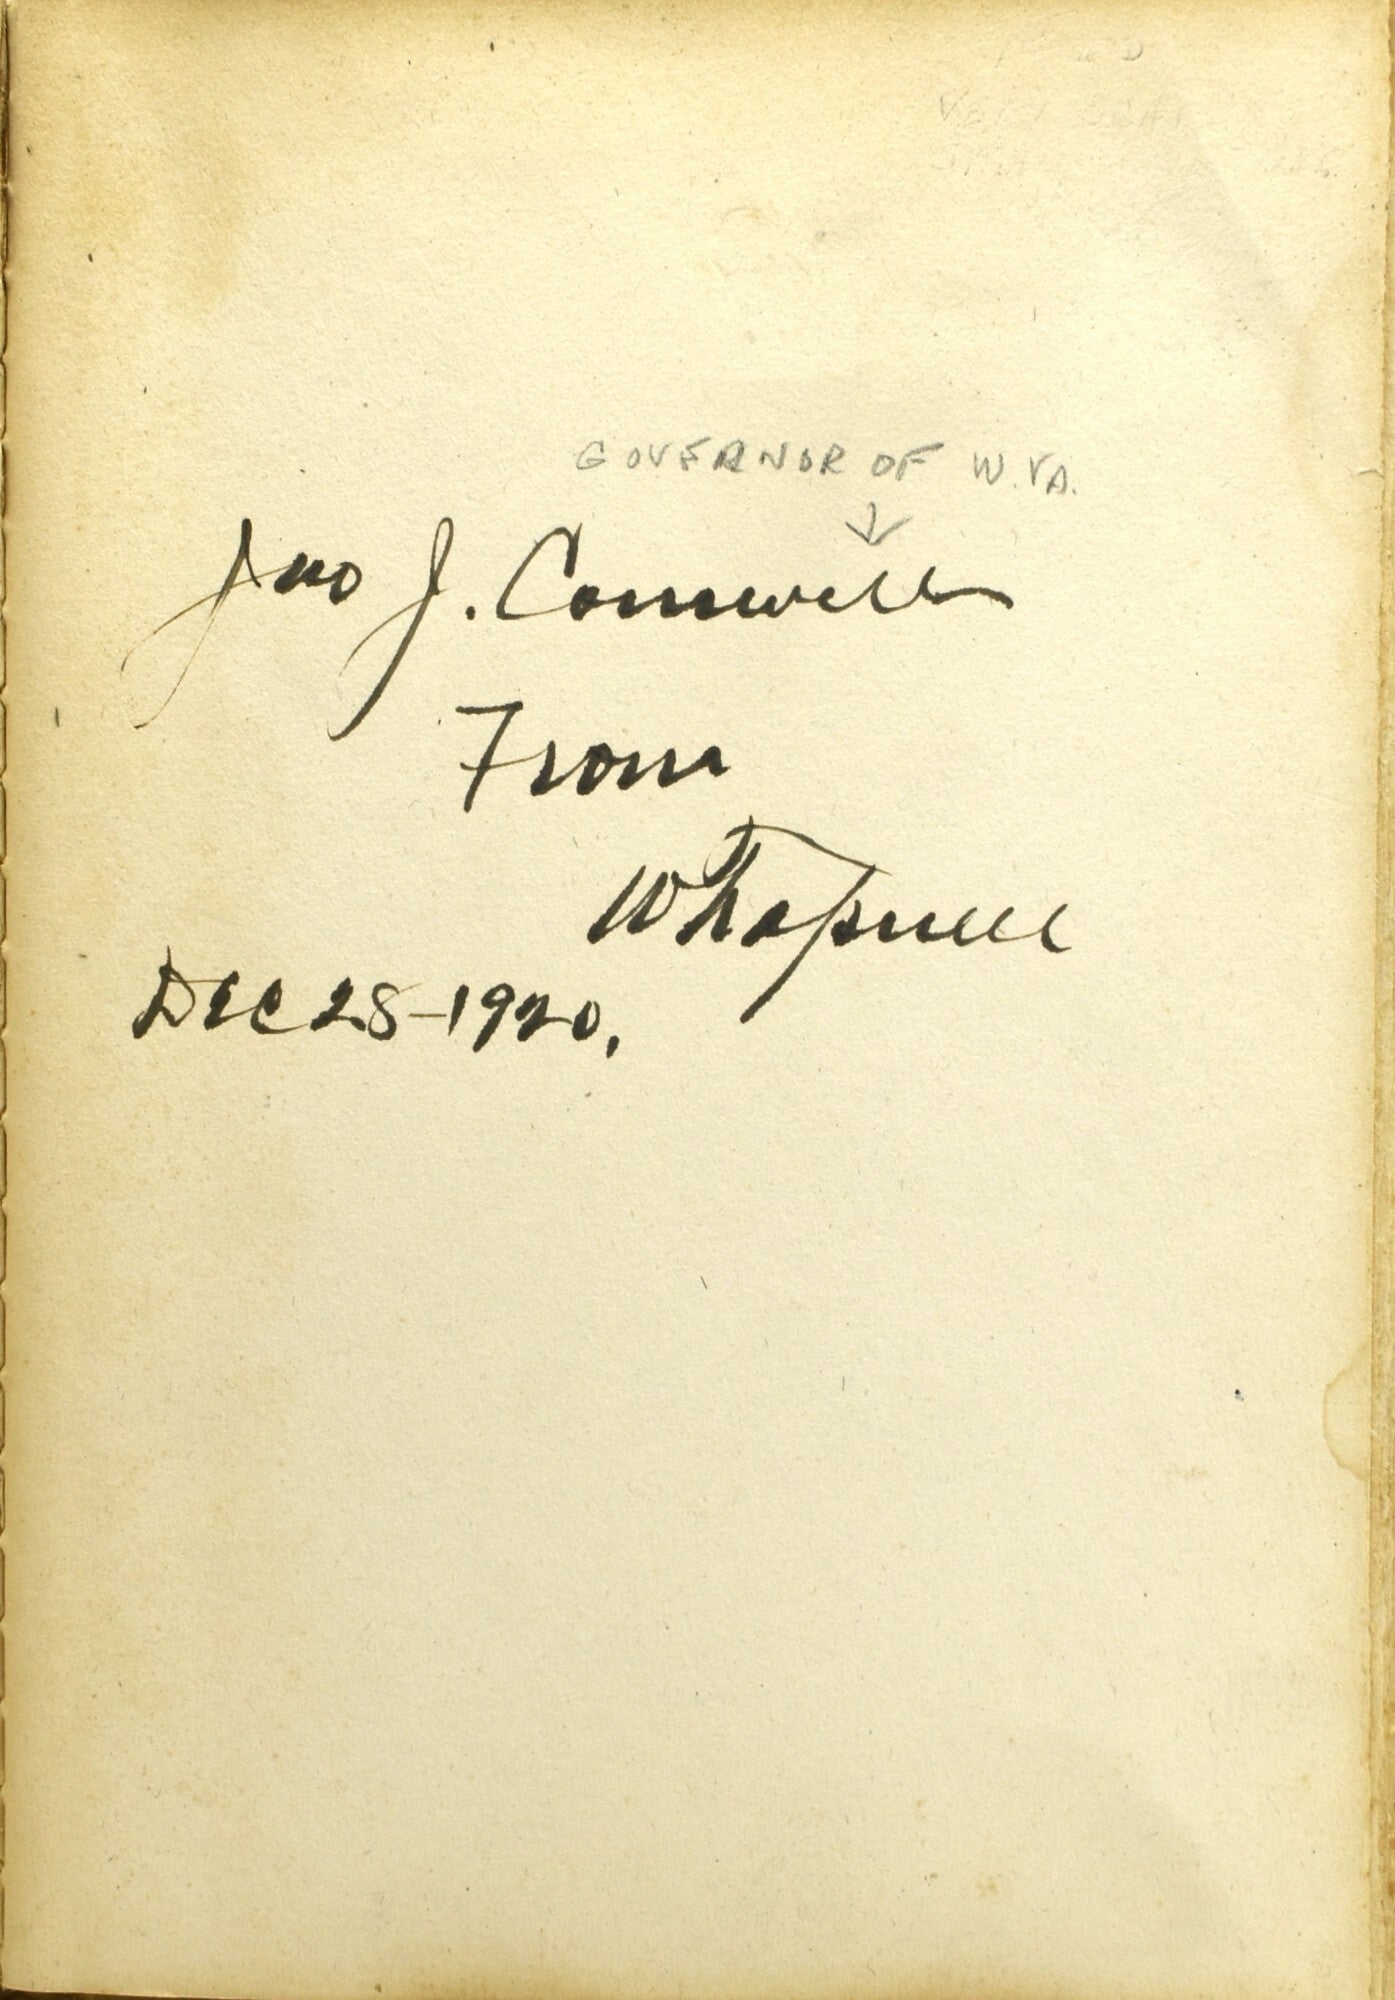 GOVERNOR OF W.VA.
Jno J. Cornwell
From
Dec 28-1920.